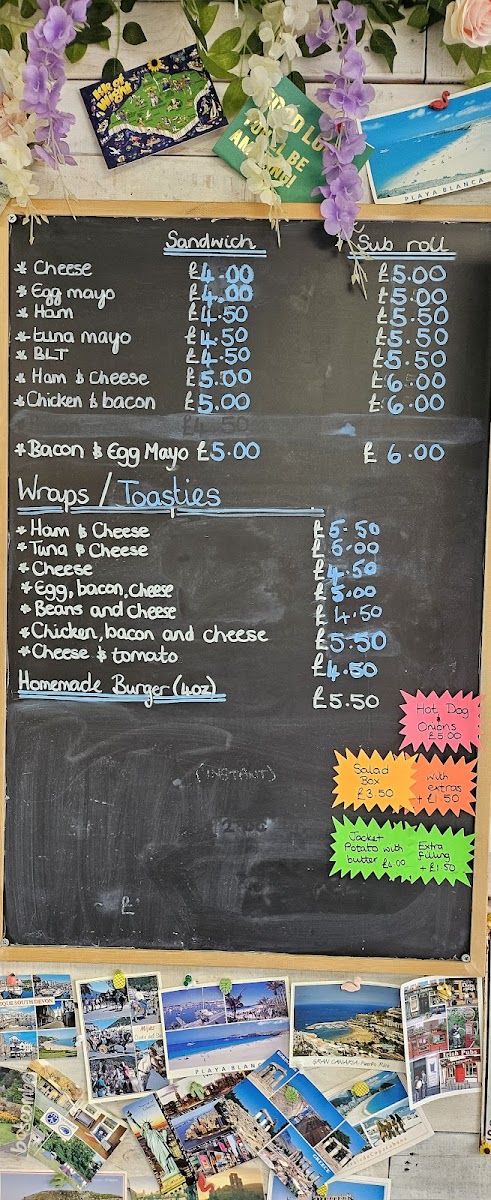 Isle of Wight
GOOD LUCK
YOU'LL BE
AMAZING!
PLAYA BLANCA
Sandwich Sub roll
* Cheese £4.00 £5.00
* Egg mayo £4.00 £5.00
* Ham £4.50 £5.50
* tuna mayo £4.50 £5.50
* BLT £4.50 £5.50
* Ham & Cheese £5.00 £6.00
* Chicken & bacon £5.00 £6.00
* Bacon & Egg Mayo £5.00 £6.00
Wraps / Toasties
* Ham & Cheese £5.50
* Tuna & Cheese £5.00
* Cheese £4.50
* Egg, bacon, cheese £5.00
* Beans and cheese £4.50
* Chicken, bacon and cheese £5.50
* Cheese & tomato £4.50
Homemade Burger (4oz) £5.50
Hot Dog
&
Onions
£5.00
Salad
Box
£3.50
with
extras
+ £1.50
(INSTANT)
Jacket
Potato with
butter £4.00
Extra
filling
+ £1.50
£
SOUTH DEVON
Mijas
Costa del Sol
PLAYA BLANCA
GRAN CANARIA Puerto Rico
GREECE